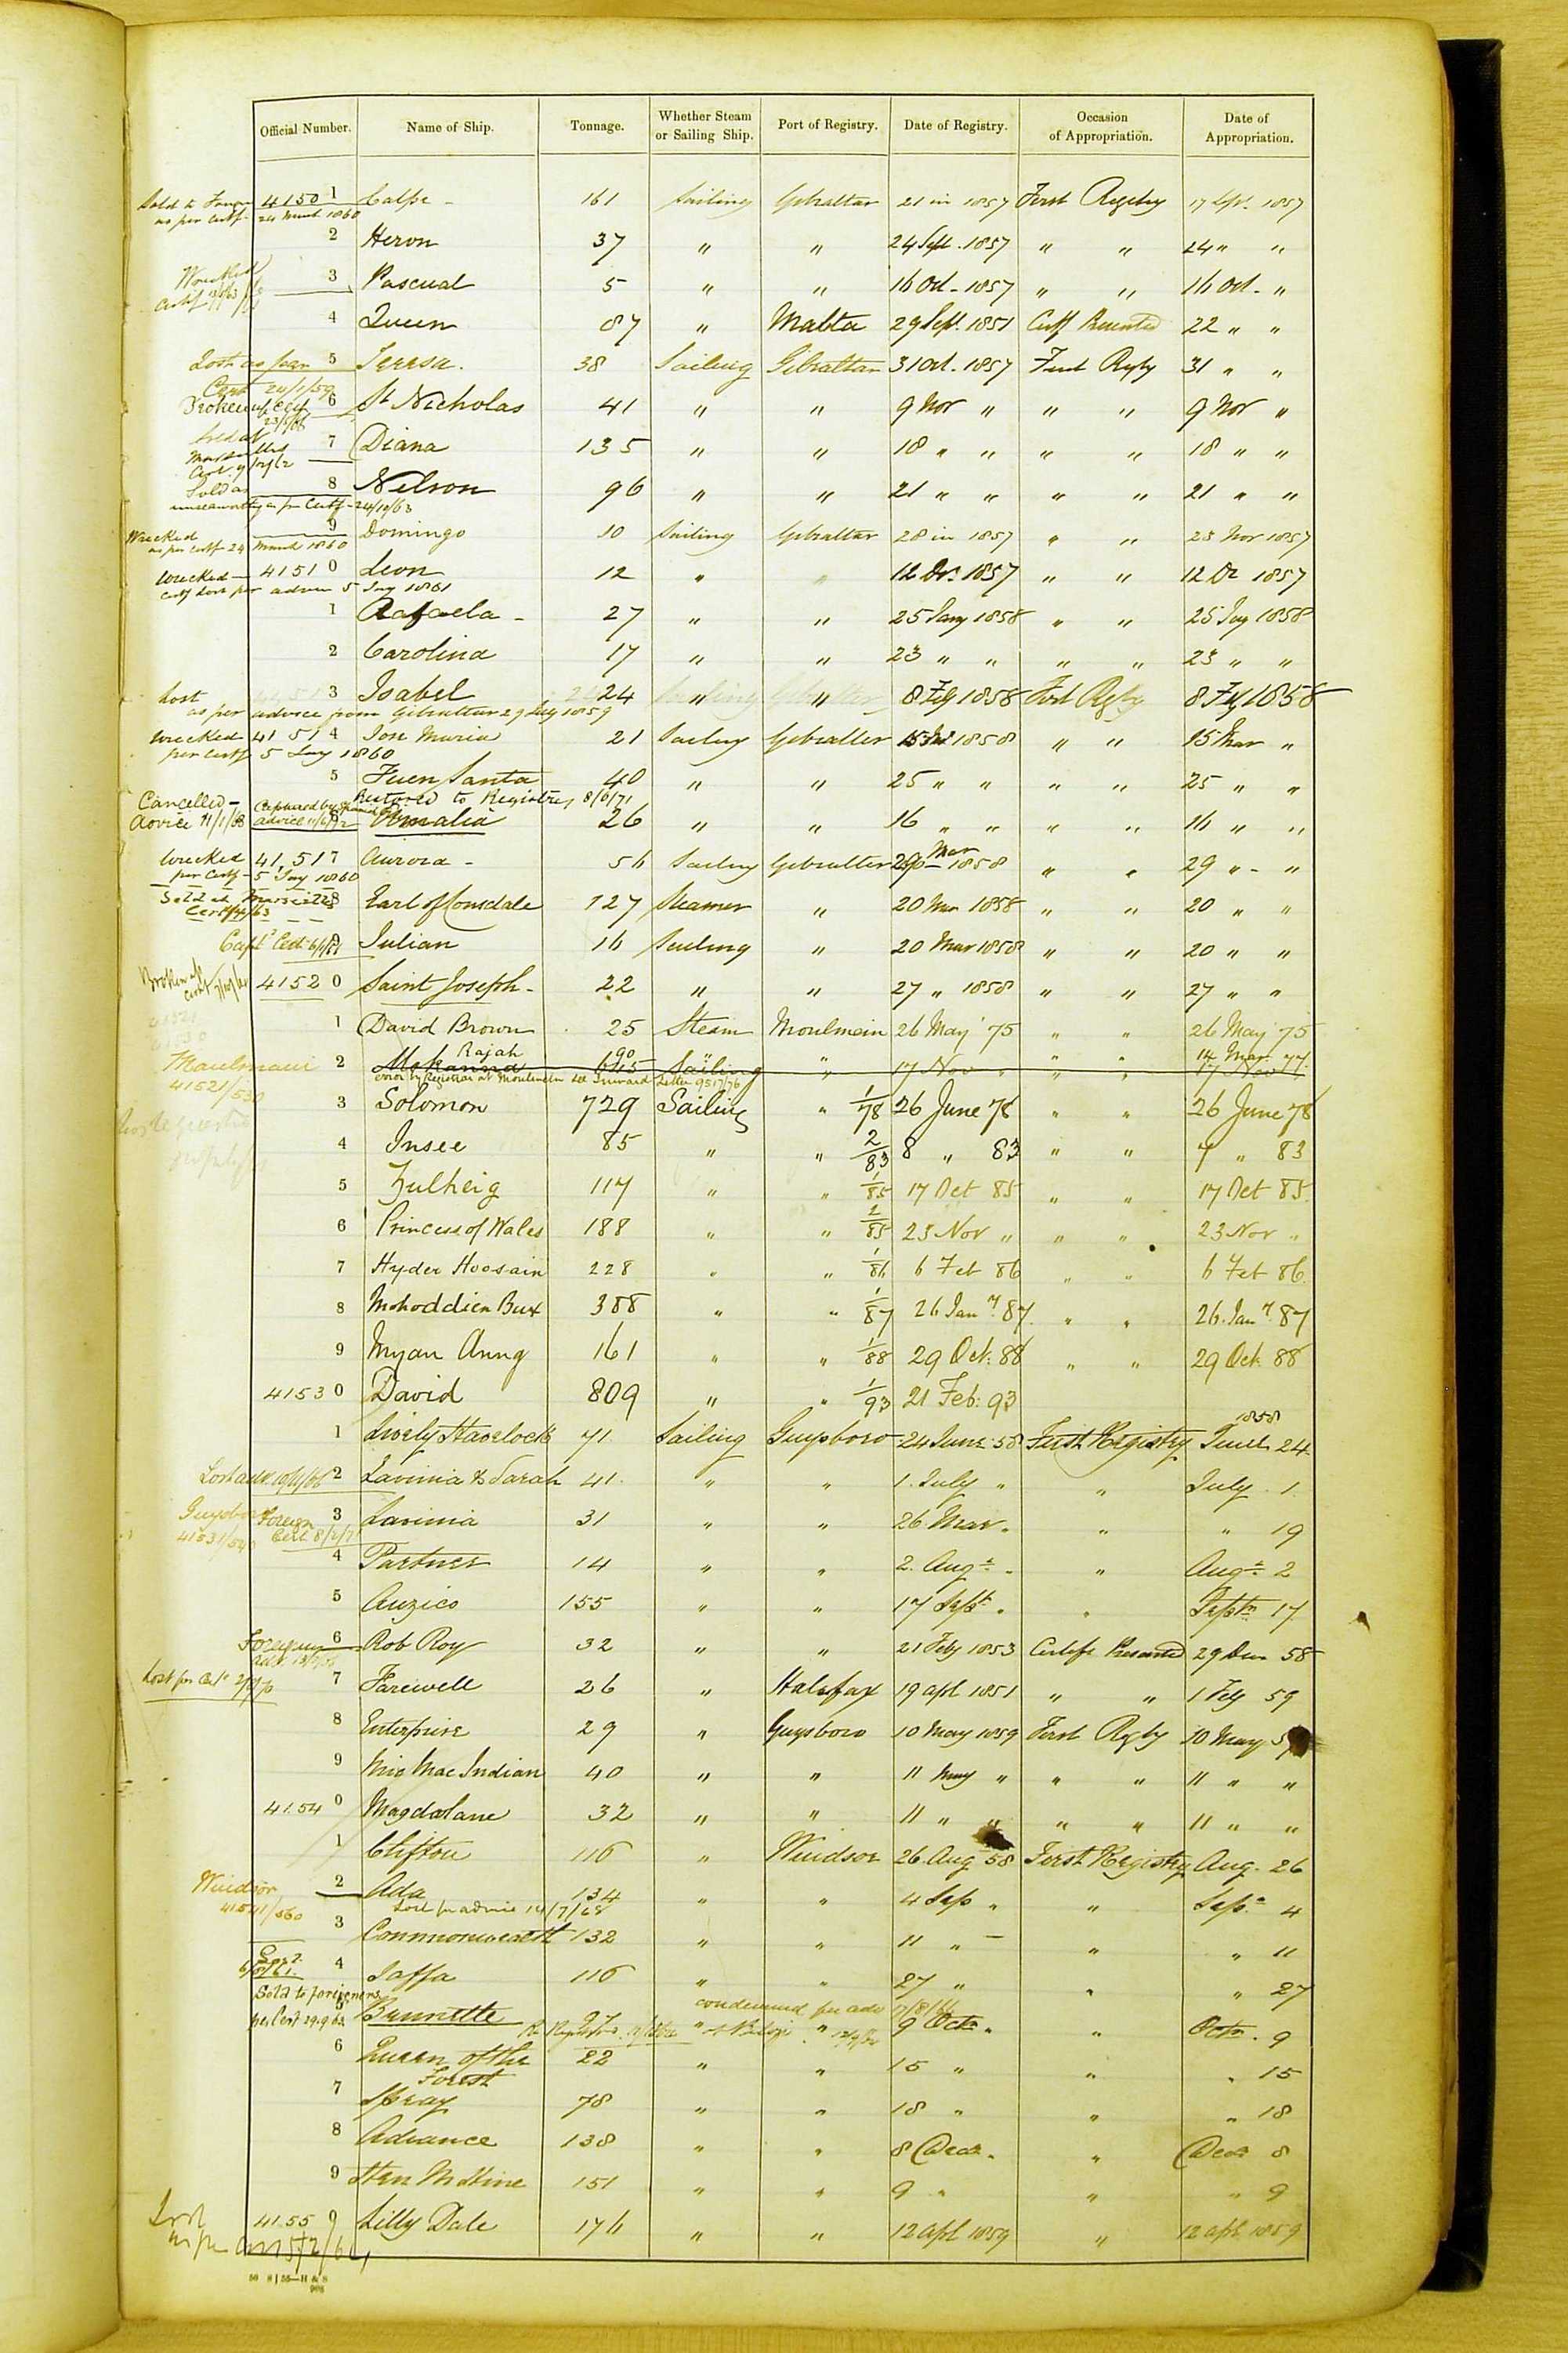 Official Number. Name of Ship. Tonnage. Whether Steam or Sailing Ship. Port of Registry. Date of Registry. Occasion of Appropriation. Date of Appropriation.
Sold to as per certf 24 March 1860 41501 Calpe - 161 Sailing Gibraltar 21 in 1857 First Registry 17 Sept. 1857
2 Heron 37 " " 24 Sept. 1857 " " 24 " "
Wrecked Certf 3 Pascual 5 " " 16 Oct. 1857 " " 16 Oct. "
4 Queen 87 " Malta 29 Sept. 1851 Certf Presented 22 " "
Lost as per Cert 24/1/59 5 Teresa. 38 Sailing Gibraltar 31 Oct. 1857 First Regty 31 " "
Broken up Certf 6 St Nicholas 41 " " 9 Nov " " " 9 Nov "
Sold at Marseilles Cert. 9/12/62 7 Diana 135 " " 18 " " " " 18 " "
Sold as unseaworthy as per Certf - 24/10/63 8 Nelson 96 " " 21 " " " " 21 " "
Wrecked as per certf 24 March 1860 9 Domingo 10 Sailing Gibraltar 28 in 1857 " " 23 Nov 1857
Wrecked - Certf Lost per advice 5 Jay 1861 41510 Leon 12 " " 12 Dc. 1857 " " 12 Dc 1857
1 Rafaela - 27 " " 25 Jany 1858 " " 25 Jay 1858
2 Carolina 17 " " 23 " " " " 23 " "
Lost as per advice from Gibraltar 29 July 1859 3 Isabel 24 " " 8 Feby 1858 First Regty 8 Fey 1858
Wrecked per certf 5 Jay 1860 41514 Jon Maria 21 Sailing Gibralter 15 1858 " " 15 Mar "
5 Fuen Santa 40 " " 25 " " " " 25 " "
Restored to Registry 8/6/71
Cancelled - Advice 11/1/68 Captured by Spanish advice 11/6/72 6 Amalia 26 " " 16 " " " " 16 " "
Wrecked per Certf - 5 Jay 1860 41,517 Aurora - 56 Sailing Gibralter 29 Mar 1858 " " 29 " - "
Sold at Marseilles Cert 63 8 Earl of Lonsdale 127 Steamer " 20 Mar 1858 " " 20 " "
Cert 9 Julian 16 Sailing " 20 Mar 1858 " " 20 " "
Broken up cert 41520 Saint Joseph - 22 " " 27 " 1858 " " 27 " "
1 David Brown 25 Steam Moulmein 26 May '75 " " 26 May '75
Maulmain 41521/530 2 Mokanna Rajah 645 90 Sailing " 17 Nov " " " 17 Nov 14 Mar. 77
error by Registrar at Moulmein see Inward Letter 9517/76
3 Solomon 729 Sailing " 1/78 26 June 78 " " 26 June 78
4 Insee 85 " " 2/83 8 " 83 " " 7 " 83
5 Zulheig 117 " " 1/85 17 Oct 85 " " 17 Oct 85
6 Princess of Wales 188 " " 2/85 23 Nov " " " 23 Nov "
7 Hyder Hoosain 228 " " 1/86 6 Feb 86 " " 6 Feb 86
8 Mohoddien Bux 388 " " 1/87 26 Jany. 87. " " 26. Jany. 87
9 Myan Aung 161 " " 1/88 29 Oct. 88 " " 29 Oct. 88
41530 David 809 " " 1/93 21 Feb. 93
1 Lively Havelock 71 Sailing Guysboro 24 June 58 First Registry 1858 June 24
Lost adv. 19/4/66 2 Lavinia & Sarah 41. " " 1. July " " July. 1
Guysboro 41531/540 Foreign Cert 8/2/71 3 Lavinia 31 " " 26. Mar. " " " 19
4 Partner 14 " " 2. Augt. " " Augt 2
5 Auzico 155 " " 17 Sept. " " Septr 17
Foreign 6 Rob Roy 32 " " 21 Feby 1853 Certife Presented 29 Decr 58
Lost per Cert 7 Farewell 26 " Halifax 19 apl 1851 " " 1 Feby 59
8 Enterprise 29 " Guysboro 10 May 1859 First Rgty 10 May 59
9 Mic Mac Indian 40 " " 11 May " " " 11 " "
41540 Magdalane 32 " " 11 " " " " 11 " "
1 Clifton 116 " Windsor 26. Aug 58 First Registry Aug. 26
Windsor 41541/560 2 Ada 134 " " 4 Sep " " Sep. 4
Lost per advice 14/7/68
3 Commonwealth 132 " " 11 " - " " 11
4 Jaffa 116 " " 27 " " " 27
condemned per adv 17/8/66
Sold to foreigners per Cert 29.9.63 5 Brunette " " 9 Octr " " Octr. 9
6 Queen of the Forest 22 " " 15 " " " 15
7 Spray 78 " " 18 " " " 18
8 Advance 138 " " 8 Decr. " Decr 8
9 151 " " 9 " " " 9
Lost as per 41550 Lilly Dale 176 " " 12 apl 1859 " 12 apl 1859